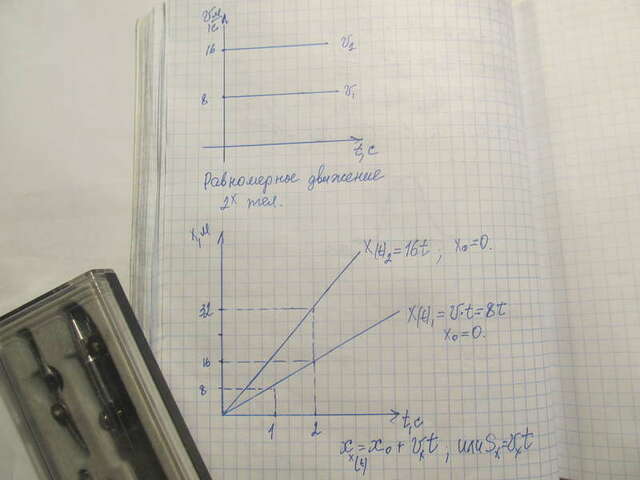 V, м/с
16
V₂
8
V₁
t, c
Равномерное движение
2ˣ тел.
x, м
X(t)₂ = 16t ; x₀ = 0.
32
X(t)₁ = V·t = 8t
x₀ = 0.
16
8
1 2 t, c
xₓ(t) = x₀ + Vₓt , или Sₓ = Vₓt